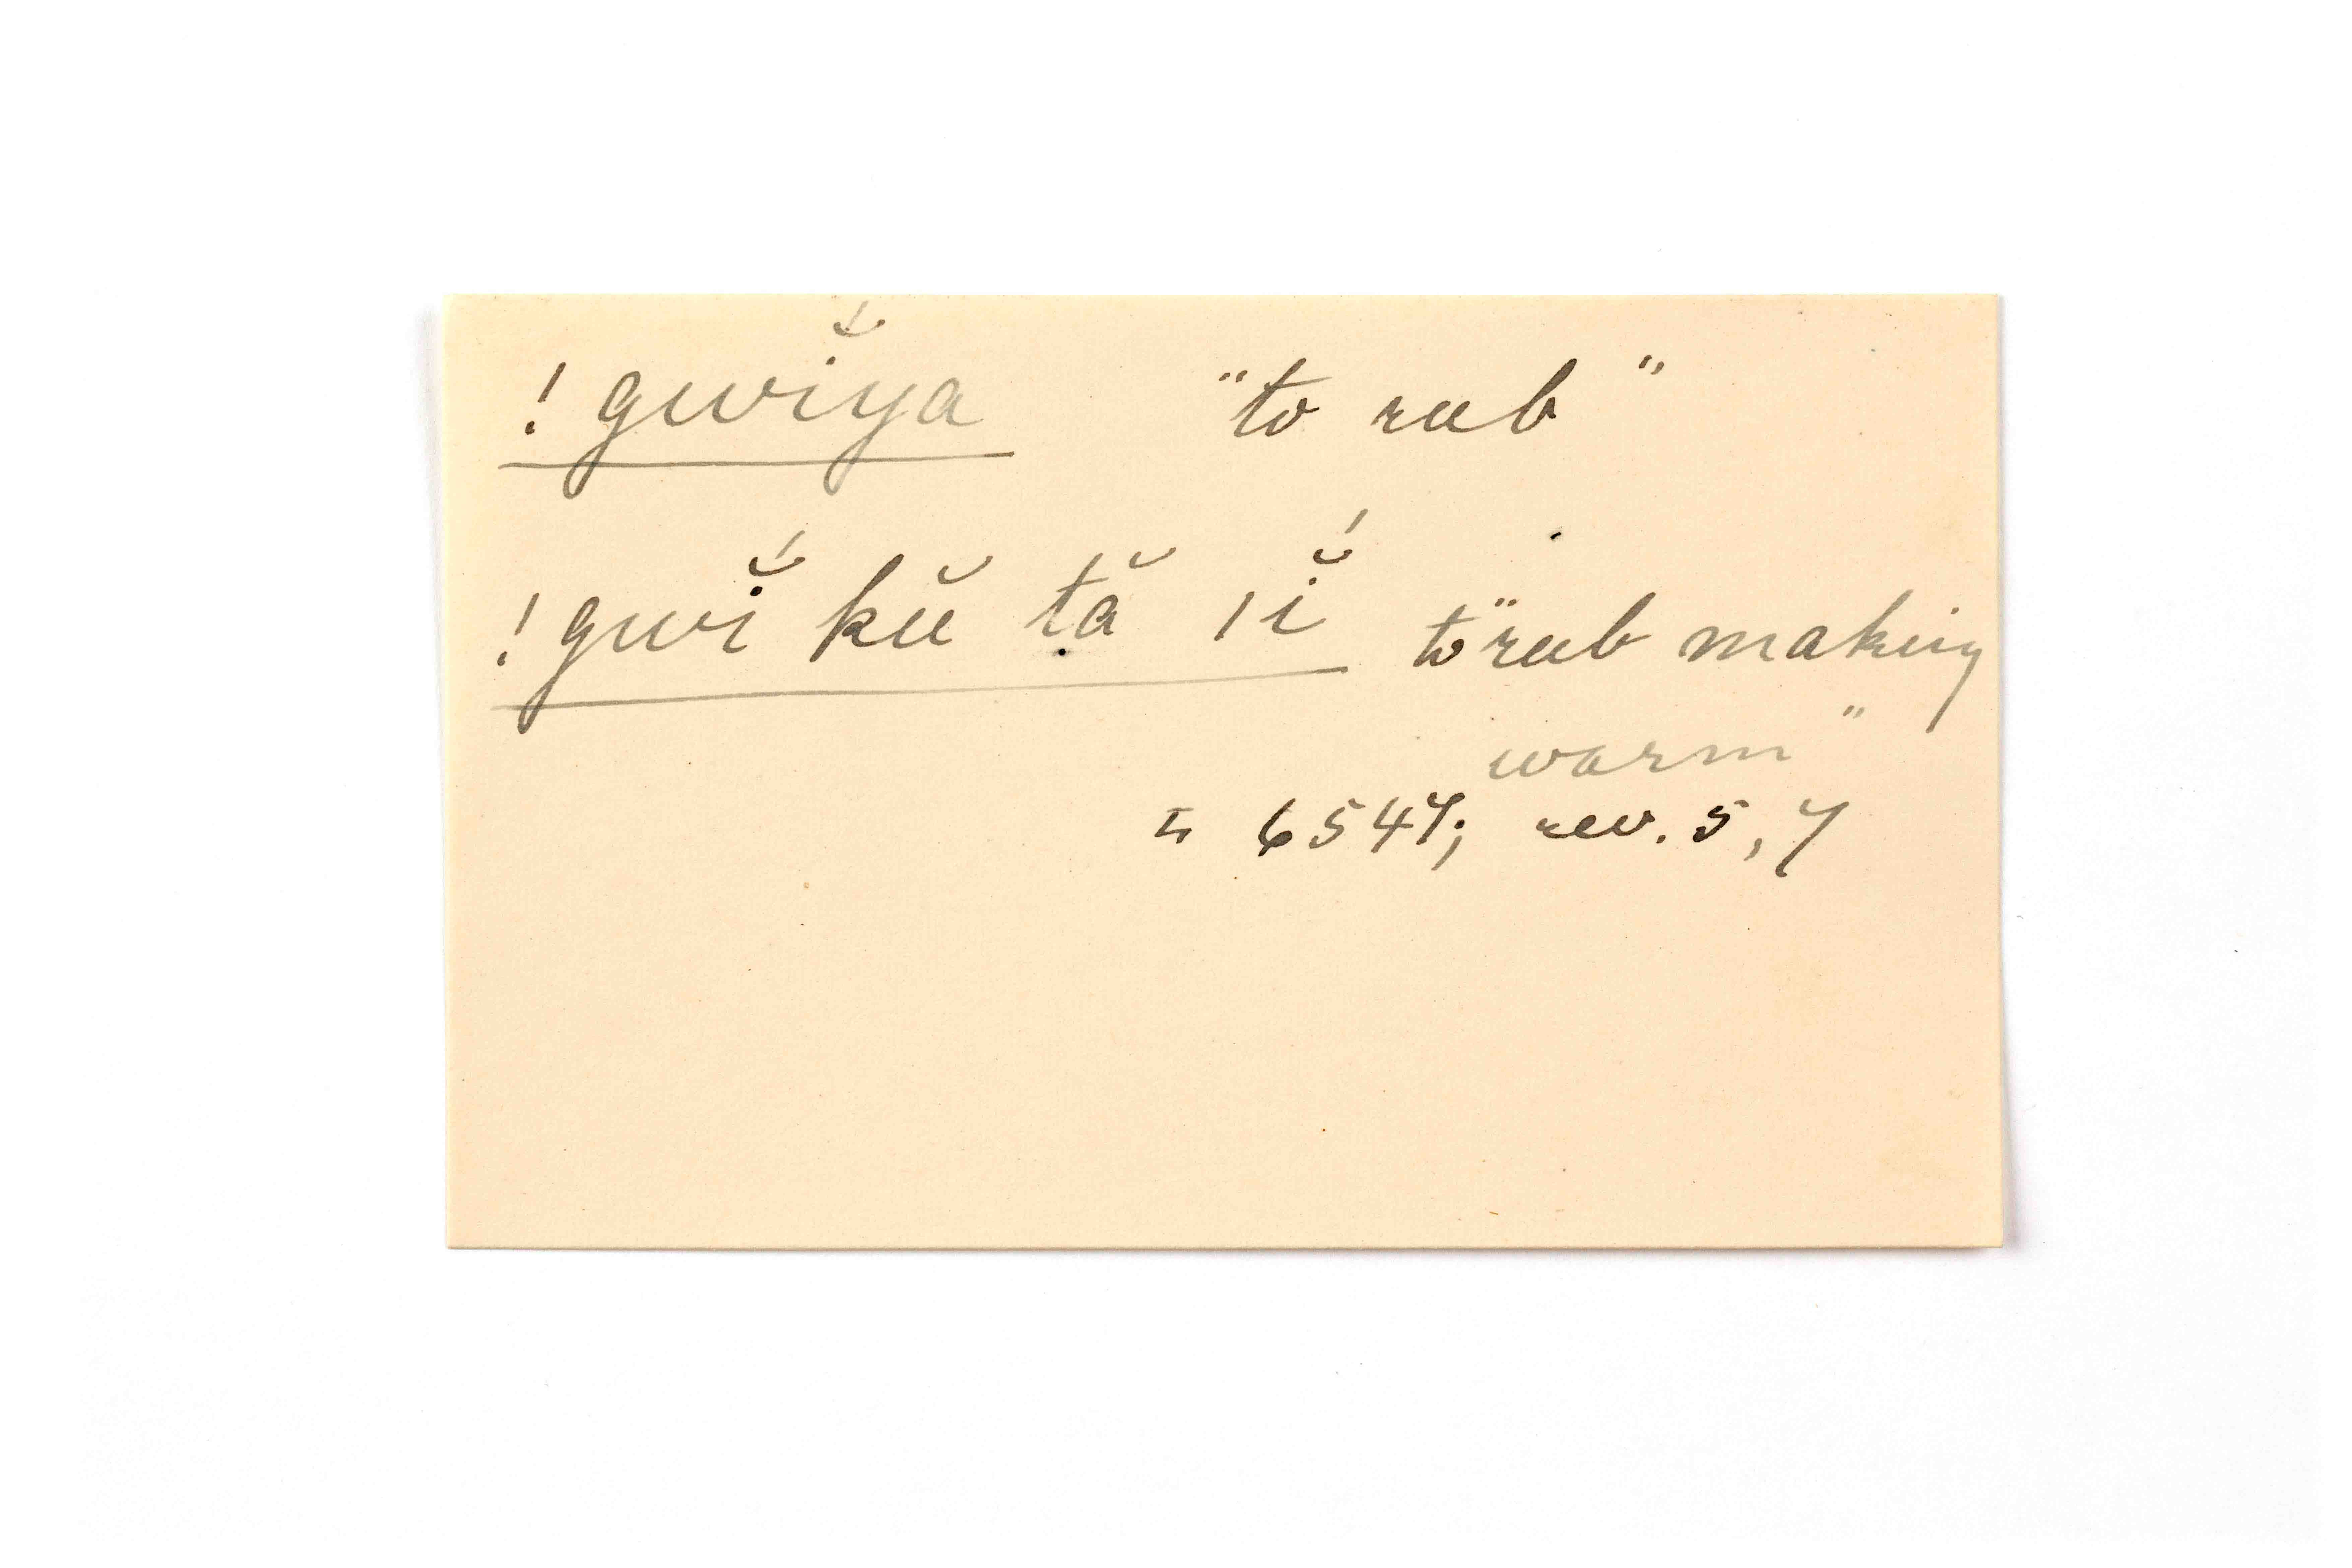 ! gwĭ́ya "to rub"
! gwĭ́ kŭ ṭă ı ĭ́ to "rub making
warm"
ʟ 6547; rev. 5, 7